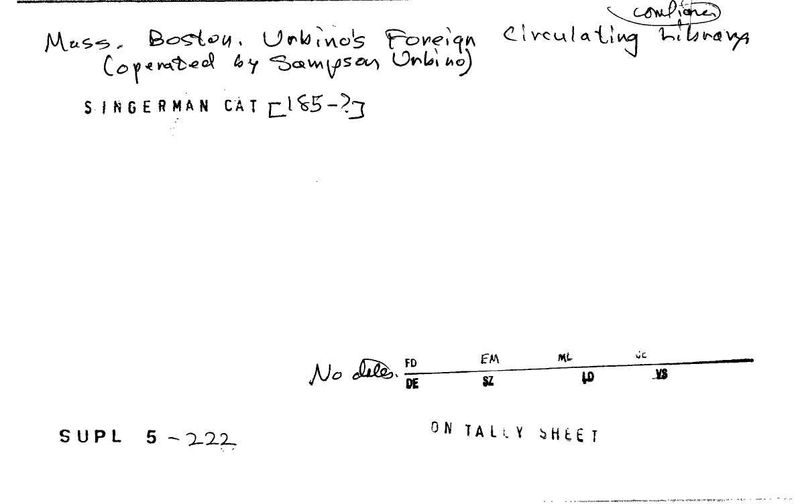 confirmed
Mass. Boston. Urbino's Foreign Circulating Library
(operated by Sampson Urbino)
SINGERMAN CAT [185-?]
FD EM ML JC
No dates.
DE SZ LD VS
SUPL 5-222
ON TALLY SHEET